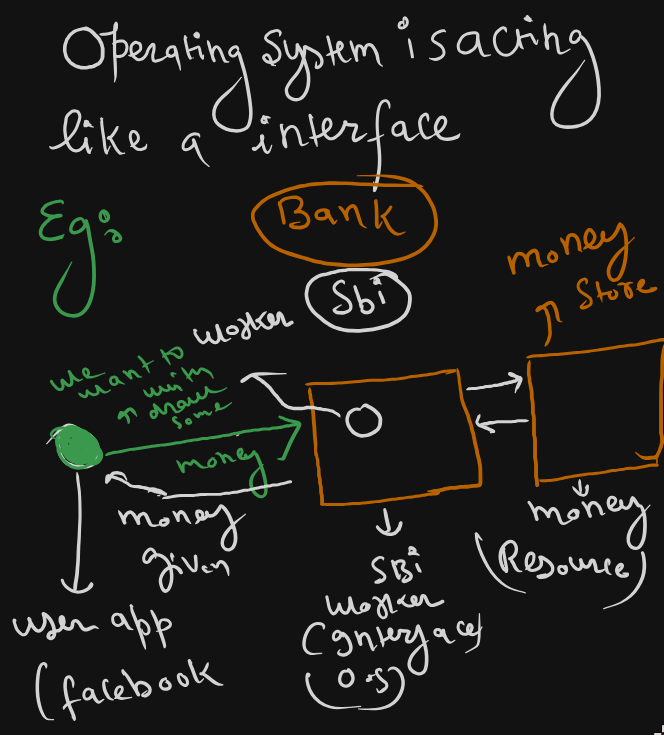 Operating System is acting
like a interface
Eg:
Bank
Sbi
money
Store
worker
we
want to
with
draw
some
money
money
given
money
(Resource)
SBi
worker
(Interface)
(O.S)
user app
(facebook